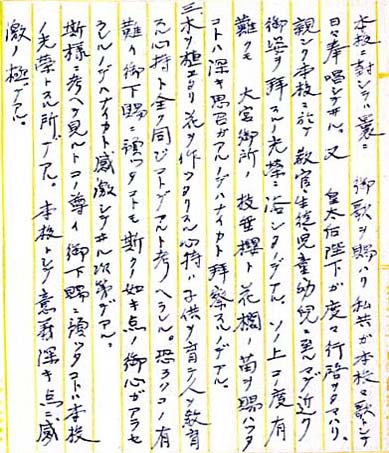 本校ニ對シテハ曩ニ 御歌ヲ賜ハリ私共ガ本校々歌トシテ
日々奉唱シテヰル。又 皇太后陛下ガ度々行啓ヲタマハリ、
親シク本校ニ於テ教官生徒児童幼児ニ至ルマデ近ク
御姿ヲ拝スルノ光栄ニ浴シタノデアル。ソノ上コノ度有
難クモ 大宮御所ノ枝垂櫻ト花欄ノ苗ヲ賜ハッタ
コトハ深キ思召ガアルノデハナイカト拝察スルノデアル。
三、木ヲ植エタリ花ヲ作ッタリスル心持ハ子供ヲ育テ人ヲ教育
スル心持ト全ク同ジコトデアルト考ヘラレル。恐ラクコノ有
難イ御下賜ニ預ッタコトモ斯クノ如キ点ノ御心ガアラセ
ラレルノデハナイカト感激シテヰル次第デアル。
斯様ニ考ヘテ見ルトコノ尊イ御下賜ニ預ッタコトハ本校
ノ光栄トスル所デアル。本校トシテ意義深キ点ニ感
激ノ極デアル。